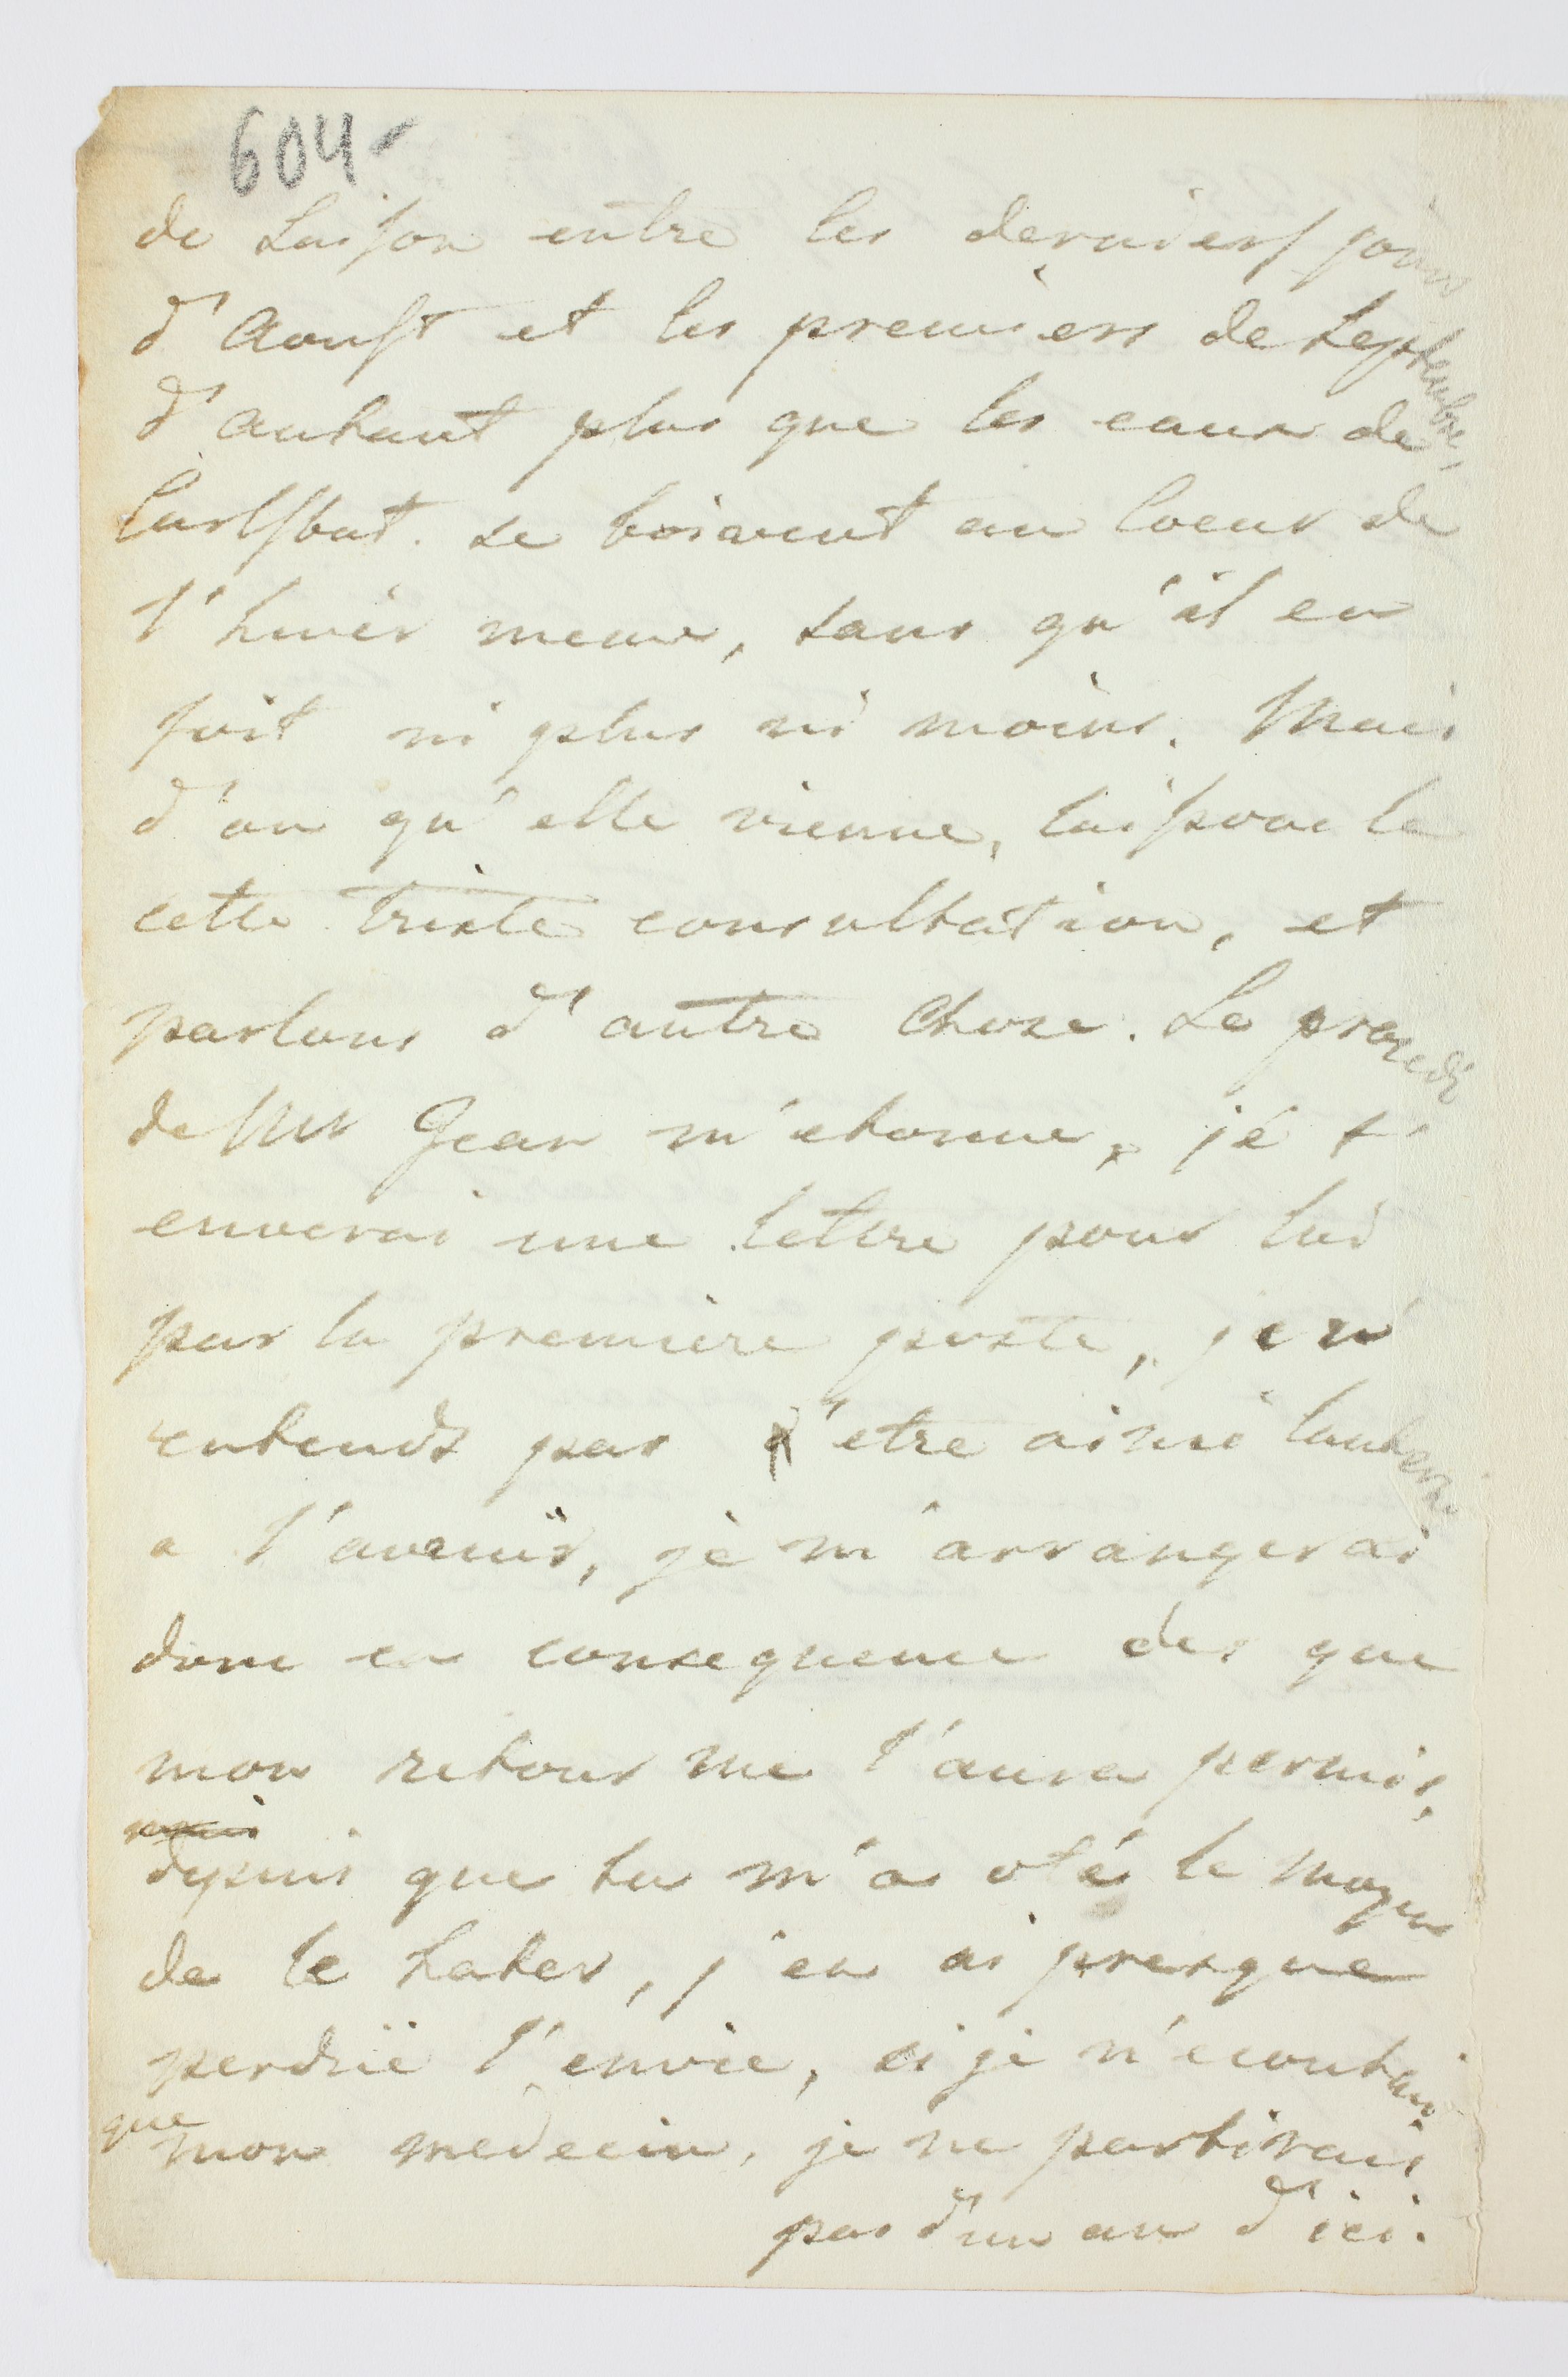 604-
de saison entre les derniers jours
d'Aoust et les premiers de septembre,
d'autant plus que les eaux de
Carlsbat. se boivent au Coeur de
l'hiver meme, sans qu'il en
soit ni plus ni moins. Mais
d'ou qu'elle vienne, laissons la
cette triste consultation, et
parlons d'autre chose. Le procedé
de Mr Jean m'etonne, je t'
enverai une lettre pour lui
par la première poste, je n'
entends pas d'etre ainsi
a l'avenir, je m'arrangerai
donc en consequence des que
mon retour me l'aura permis,
mais
depuis que tu m'a oté le moyen
de le hater, j'en ai presque
perdue l'envie, si je n'ecoutais
que
mon medecin, je ne partirais
pas d'un an d'ici.